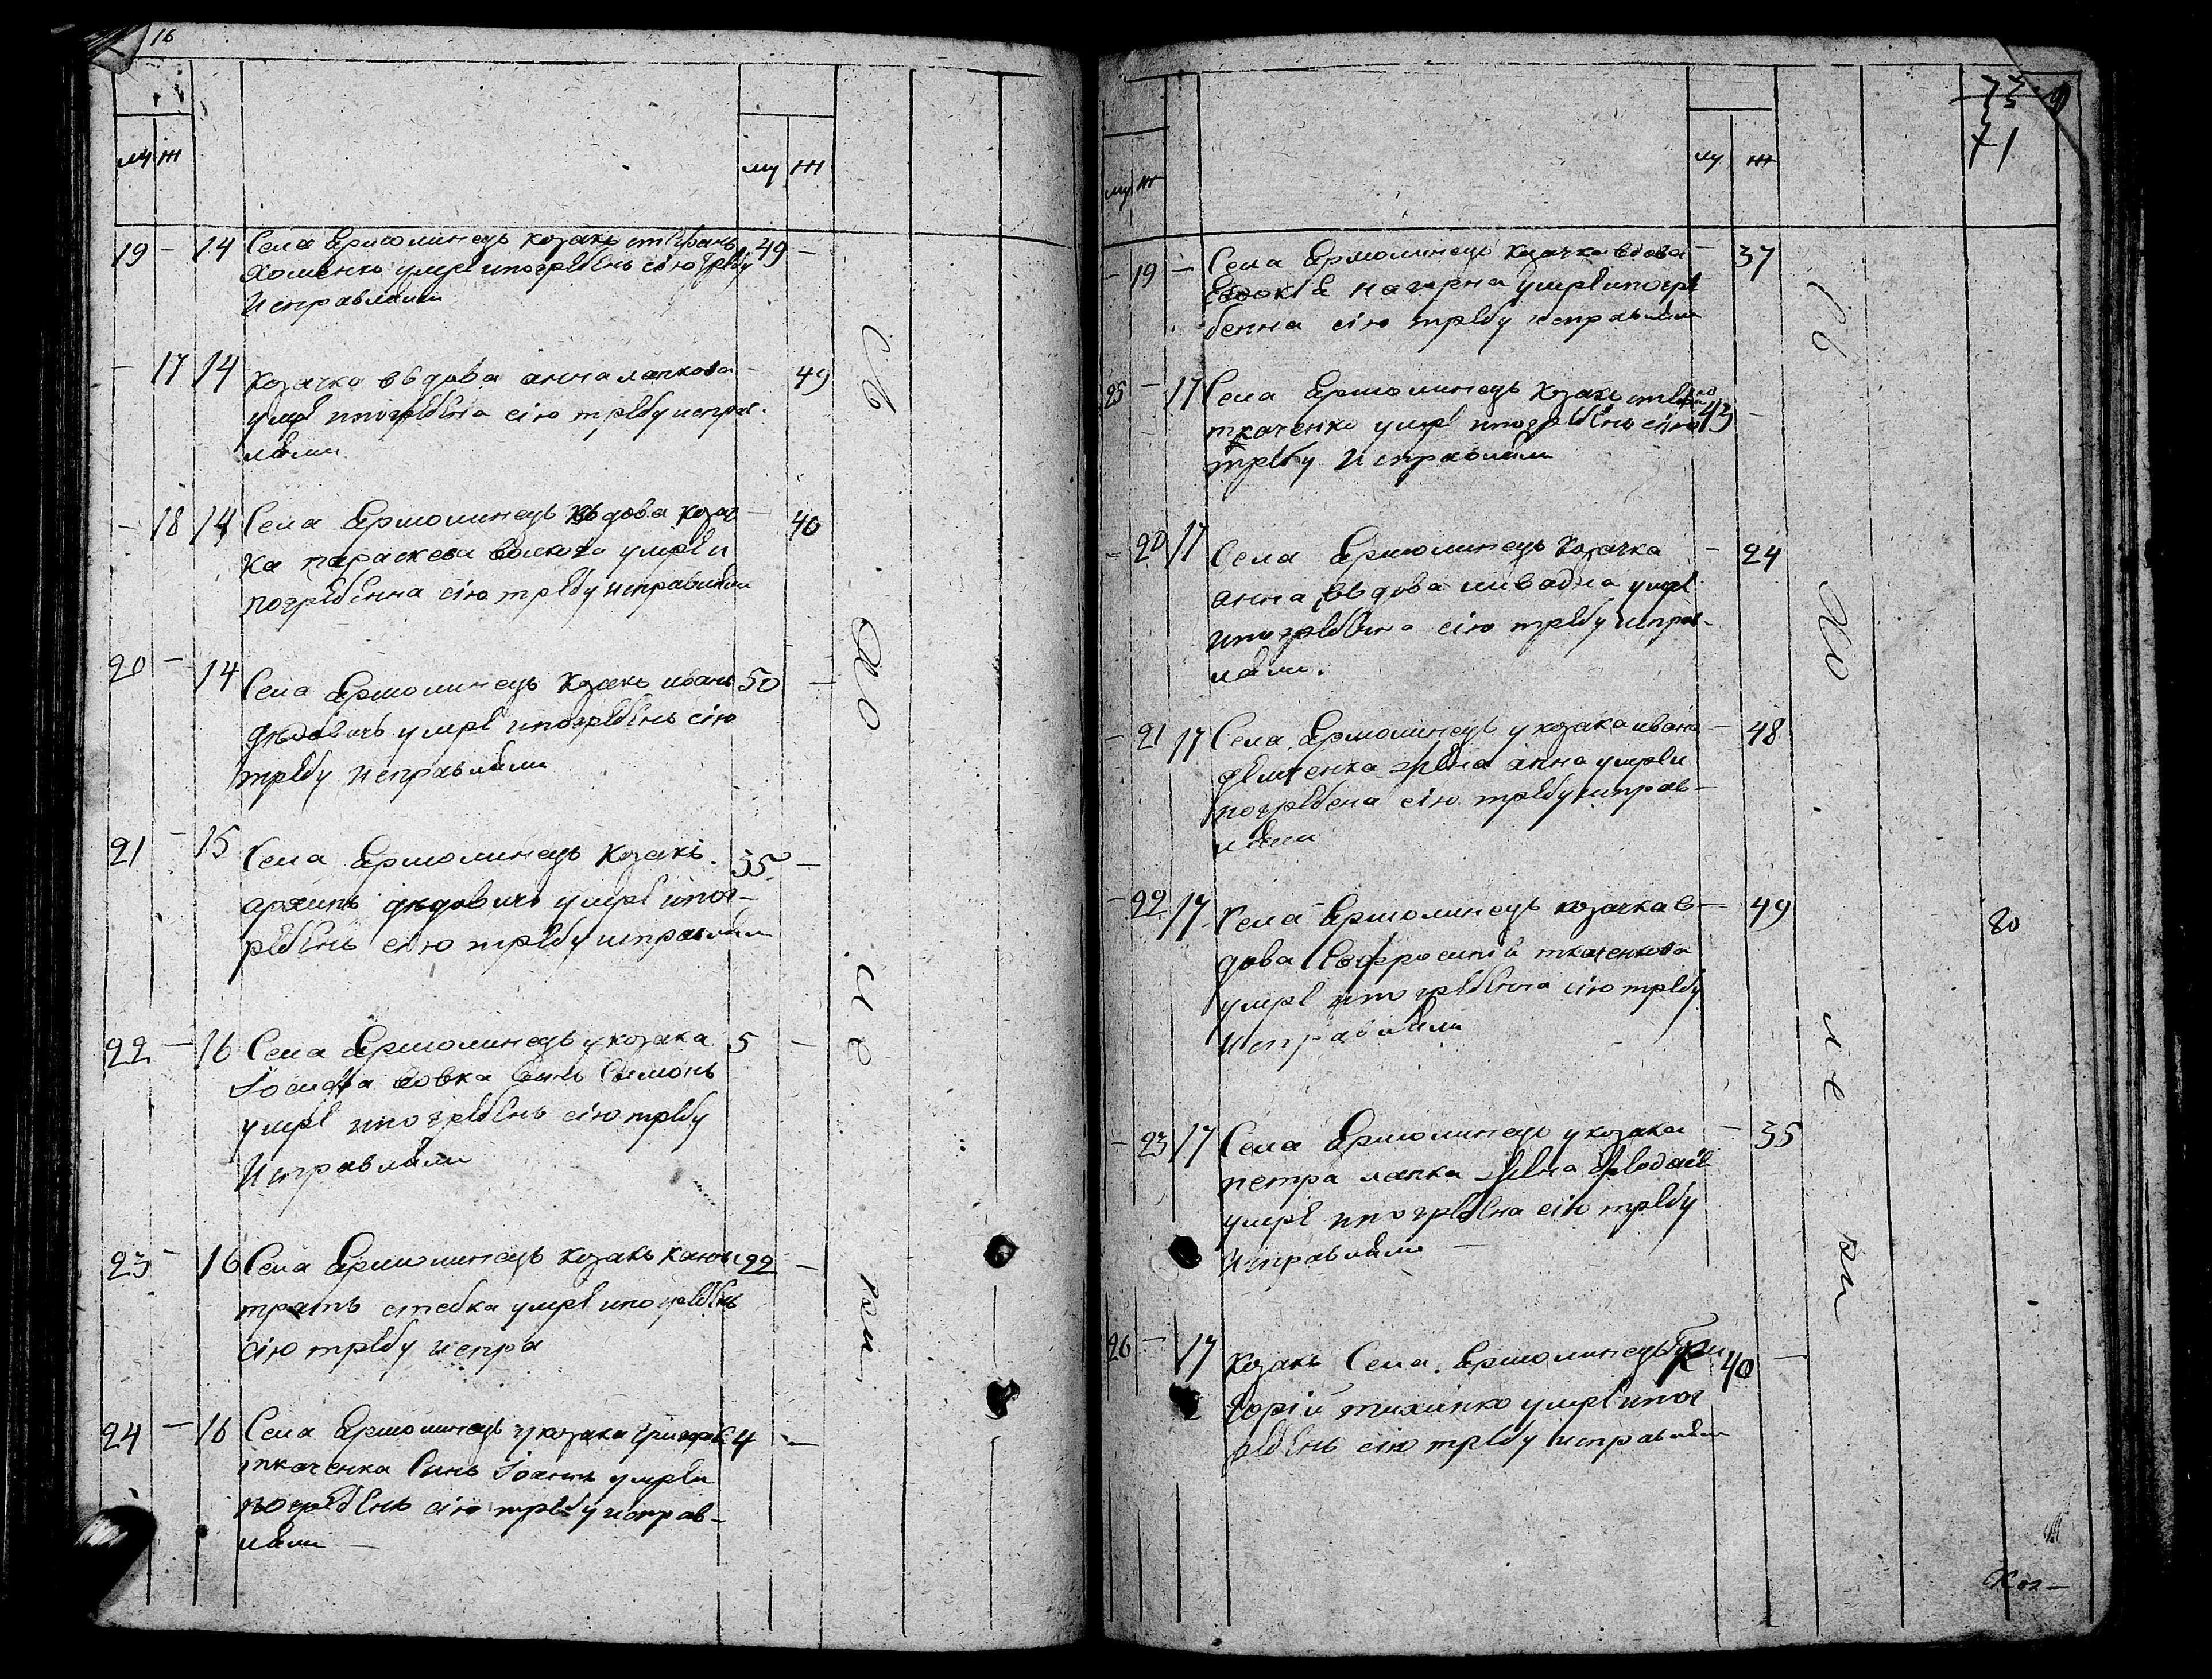 16
му ж му ж
19 - 14 Села Ермолинець козакъ стефанъ 49 -
Хоменко умре и погребенъ сію требу
Исправляли
- 17 14 Козачка въдова анна лапкова - 49
умре и погребена сію требу исправ-
ляли
- 18 14 Села Ермолинець въдова козач- - 40
ка параскева умре и
погребенна сію требу исправляли
20 - 14 Села Ермолинець козакъ иванъ 50 -
дѣдовичъ умре и погребенъ сію
требу исправляли
21 - 15 Села Ермолинець козакъ 35 -
архипъ дѣдовичъ умре и пог-
ребенъ сію требу исправляли
22 - 16 Села Ермолинець у козака 5 -
Іосифа вовка синъ Симонъ
умре и погребенъ сію требу
Исправляли
23 - 16 Села Ермолинець козакъ 22 -
стебка умре и погребенъ
сію требу испра
24 - 16 Села Ермолинець у козака григорія 4 -
ткаченка синъ Іоаннъ умре и
погребенъ сію требу исправ-
ляли -
71
му ж му ж
- 19 - Села Ермолинець козачка вдова - 37
Евдокія умре и погре
бенна сію требу исправляли
25 - 17 Села Ермолинець козакъ 43 -
ткаченко умре и погребенъ сію
требу Исправляли
- 20 17 Села Ермолинець козачка - 24
анна въдова умре
и погребена сію требу исправ-
ляли.
- 21 17 Села Ермолинець у козака ивана - 48
демченка жена анна умре и
погребена сію требу исправ-
ляли
- 22 17 Села Ермолинець козачка в- - 49
дова Ефросинія ткаченкова
умре и погребенна сію требу
Исправляли
80
- 23 17 Села Ермолинець у козака - 35
петра лапка жена
умре и погребена сію требу
Исправляли -
26 - 17 Козакъ Села Ермолинець Гри 40 -
горій тихинко умре и пог
ребенъ сію требу исправляли
Коз-